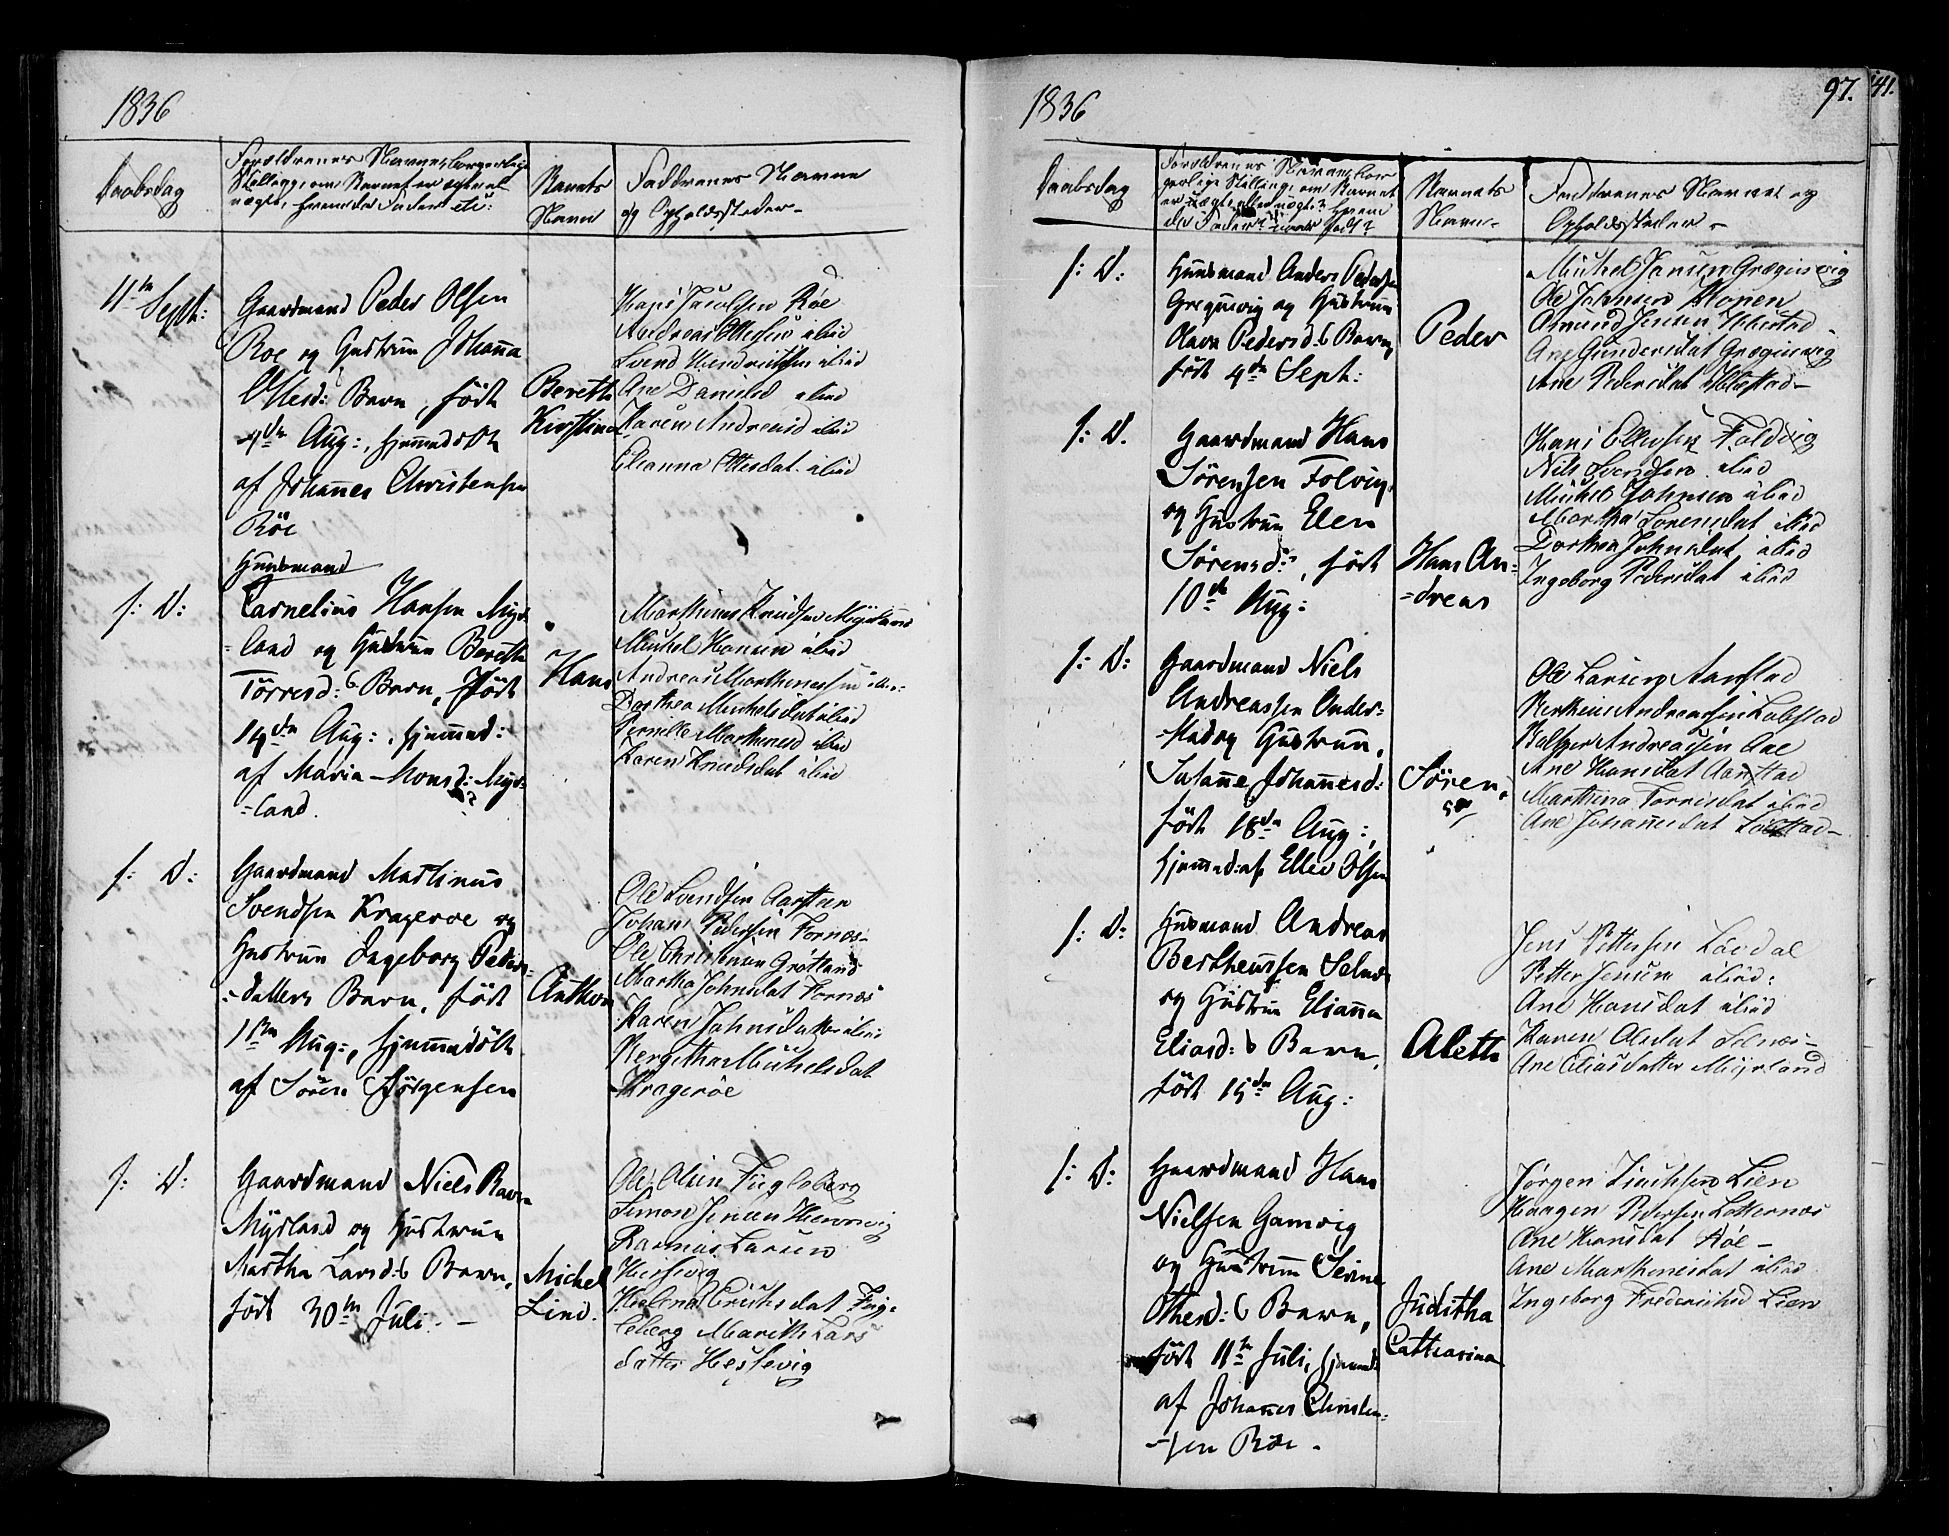 1836
Daabsdag
Forældrenes Navne, borgerlige
Stilling, om Barnet er ægte el.
uægte, hvem der Fader etc:
Barnets
Navn
Faddrenes Navne
og Opholdssteder
11te Sept:
Gaardmand Peder Olsen
Röe og Hustrue Johanna
Ottesd: Barn, födt
4de Aug:, hjemmedöbt
af Johannes Christensen
Röe
Bereth
Kirstina
Hans Jacobsen Röe
Andreas Ottesen ibid
Svend Hendrichsen ibid
Ane Danielsd ibid
Karen Andreasd ibid
Elianna Ottesdat. ibid
s: D:
Huusmand
Cornelius Hansen Myr-
land og Hustrue Bereth
Törresd:s Barn, födt
14de Aug:, hjemmed:
af Maria Monsd: Myr-
land.
Hans
Marthinus Knudsen Myrland
Michel Hansen ibid
Andreas Marthinussen ibid:
Dorthea Michelsdat ibid
Pernille Marthinesd ibid
Karen Knudsdat ibid
s: D:
Gaardmand Martinus
Svendsen Krageroe og
Hustrue Ingeborg Peders-
datters Barn, födt
1ste Aug:, hjemmedöbt
af Sören Jörgensen
Anthon
Ole Svendsen Aarsteen
Johan Pedersen Fornes
Ole Christensen Grötland
Martha Johnsdat Fornes
Karen Johnsdatter ibid
Bergitha Michelsdat
Krageröe
s: D:
Gaardmand Niels Ravn
Myrland og Hustrue
Martha Larsd:s Barn,
födt 30te Juli. -
Michel
Lind.
Ole Olsen Fuglsberg
Simon Jensen
Rasmus Larsen
Hessevig
Helena Erichsdat Fug-
leberg Mareth Lars
datter Hessevig
1836
97.
41.
Daabsdag
Forældrenes Navne, bor
gerlige Stilling, om Barnet
er ægte eller uægte? hvem
der Fader? naar födt?
Barnets
Navn
Faddrenes Navne og
Opholdssteder
s: D:
Huusmand Anders Pedersen
Greqnsvig og Hustrue
Olava Pedersd:s Barn,
födt 4de Sept:
Peder
Michel Jansen Græginsvig
Ole Johnsen
Asmund Jensen
Ane Gundersdat Græginsvig
Ane Pedersdat
s: D.
Gaardmand Hans
Sörensen Folvig,
og Hustrue Elen
Sörensd:, födt
10de Aug:
Hans An-
-dreas
Hans Ellevsen Foldvig
Nils Svendsen ibid
Michel Johnsen ibid
Martha Sörensdat ibid
Dorthea Johnsdat, ibid
Ingeborg Pedersdat ibid
s: D:
Gaardmand Niels
Andreassen Ander-
stad og Hustrue,
Susanne Johannesd:
födt 18de Aug:,
hjemmed: af Ellev Olsen
Sören.
Ole Larsen Aanstad
Andreassen
Andreassen Aae
Ane Hansdat Aanstad
Marthina Torrisdat ibid
Ane Johannesdat
s: D:
Husmand Andreas
Bertheussen Selnes
og Hustrue Elianna
Eliasd:s Barn,
födt 15de Aug:
Aleth
Jens Pettersen Lövdal
Petter Jensen ibid:
Ane Hansdat ibid
Karen Olsdat Selnes
Ane Eliasdatter Myrland
s: D:
Gaardmand Hans
Nielsen Gamvig
og Hustrue Sevine
Othesd:s Barn,
födt 11te Juli, hjemmd:
af Johannes Christen-
-sen Röe.
Juditha
Catharina
Jörgen Lien
Haagen Pedersen
Ane Hansdat Röe
Ane Marthinesdat ibid
Ingeborg Frederichsd Lien